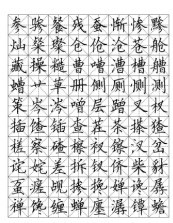 参骖餐残蚕惭惨黪
灿粲璨仓伧沧苍舱
藏操糙曹嘈漕槽艚
螬艹草册侧厕恻测
策岑涔噌层蹭叉杈
插馇碴查茬茶搽猹
槎察碴檫衩镲汊岔
诧姹差拆钗侪柴豺
虿瘥觇掺搀婵谗孱
禅馋缠蝉廛潺镡蟾